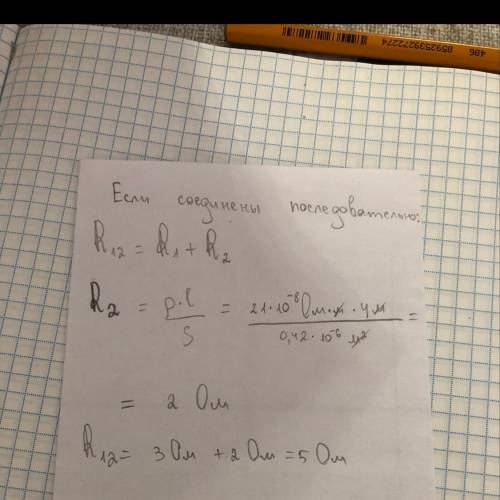 486
8593539272274
Если соединены последовательно:
R₁₂ = R₁ + R₂
R₂ = ρ·l / S = 21·10⁻⁸ Ом·м · 4м / 0,42·10⁻⁶ м² =
= 2 Ом
R₁₂ = 3 Ом + 2 Ом = 5 Ом